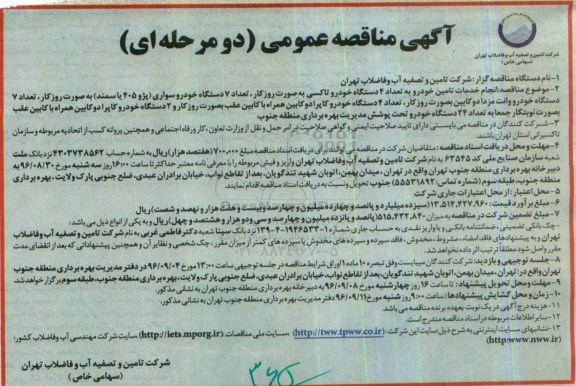 شرکت تامین و تصفیه آب و فاضلاب تهران
(سهامی خاص)
آگهی مناقصه عمومی (دو مرحله ای)
۱-نام دستگاه مناقصه گزار: شرکت تامین و تصفیه آب وفاضلاب تهران
۲- موضوع مناقصه: انجام خدمات تامین خودرو به تعداد ۴ دستگاه خودرو تاکسی به صورت روزکار، تعداد ۷ دستگاه خودرو سواری (پژو ۴۰۵ یا سمند) به صورت روزکار، تعداد ۷
دستگاه خودرو وانت مزدا دوکابین بصورت روزکار، تعداد ۴ دستگاه خودرو کاپرا دوکابین همراه با کابین عقب بصورت روزکار و ۲ دستگاه خودرو کاپرا دوکابین همراه با کابین عقب
بصورت نوبتکار جمعا به تعداد ۲۴ دستگاه خودرو تحت پوشش مدیریت بهره برداری منطقه جنوب
۳- شرکت کنندگان در مناقصه می بایستی دارای تایید صلاحیت ایمنی و گواهی صلاحیت در امر حمل و نقل از وزارت تعاون ،کار و رفاه اجتماعی و همچنین پروانه کسب از اتحادیه مربوطه و سازمان
تاکسیرانی استان تهران باشند.
۴- مهلت و محل دریافت اسناد مناقصه: متقاضیان شرکت در مناقصه می بایستی برای دریافت اسناد مناقصه مبلغ ۷۰۰,۰۰۰ (هفتصد هزار) ریال به شماره حساب ۴۳۰۳۷۳۸۵۶۲ نزد بانک ملت
شعبه سازمان صنایع ملی کد ۶۳۵۴۵ به نام شرکت تامین و تصفیه آب وفاضلاب تهران واریز و فیش مربوطه را با معرفی نامه معتبر حداکثر تا ساعت ۱۶:۰۰ روز سه شنبه مورخ ۹۶/۰۸/۳۰ به
دبیرخانه بهره برداری منطقه جنوب تهران واقع در تهران ، میدان بهمن، اتوبان شهید تندگویان، بعد از تقاطع نواب، خیابان برادران عبدی، ضلع جنوبی پارک ولایت، بهره برداری
منطقه جنوب، طبقه سوم (شماره تماس: ۵۵۵۳۱۸۹۲) جنوب تحویل و نسبت به دریافت اسناد مناقصه اقدام نمایند.
۵- محل اعتبار : از محل اعتبارات جاری شرکت
۶- مبلغ برآورد قیمت: ۱۳,۵۱۴,۴۲۷,۹۶۰ (سیزده میلیارد و پانصد و چهارده میلیون و چهارصد و بیست و هفت هزار و نهصد و شصت) ریال
۷- مبلغ تضمین شرکت در مناقصه به میزان ۵۱۵,۴۳۲,۸۴۰ (پانصد و پانزده میلیون و چهارصد و سی و دو هزار و هشتصد و چهل) ریال و به یکی از انواع ذیل می باشد:
- چک بانکی تضمینی، ضمانتنامه بانکی و یا واریز نقدی به حساب جاری شماره ۱-۱۹۴۶۵۳۳-۴-۱۳۹ نزد بانک سینا شعبه دکتر فاطمی غربی به نام شرکت تامین و تصفیه آب وفاضلاب
تهران و به پیشنهادهای فاقد امضاء ، مشروط ، مخدوش ، فاقد سپرده و سپرده های مخدوش یا سپرده های کمتر از میزان مقرر، چک شخصی و نظایر آن و همچنین پیشنهاداتی که بعد از انقضای مدت
مقرر واصل شود مطلقاً ترتیب اثر داده نخواهد شد.
۸- جلسه توجیهی و بازدید: شرکت کنندگان میبایست وفق تبصره ۱۰ ماده ۱ اوراق شرایط مناقصه در جلسه توجیهی ساعت ۱۳:۰۰ مورخ ۹۶/۰۹/۰۴ در دفتر مدیریت بهره برداری منطقه جنوب
تهران واقع در: تهران، میدان بهمن، اتوبان شهید تندگویان، بعد از تقاطع نواب، خیابان برادران عبدی، ضلع جنوبی پارک ولایت، بهره برداری منطقه جنوب، طبقه سوم برگزار خواهد شد.
۹- مهلت و محل تحویل پیشنهادها: تا ساعت ۱۶ روز چهارشنبه مورخ ۹۶/۰۹/۰۸ به دبیرخانه بهره برداری منطقه جنوب تهران به نشانی مذکور.
۱۰- زمان و محل گشایش پیشنهادها: ساعت ۹:۰۰ روز شنبه مورخ ۹۶/۰۹/۱۱ دفتر مدیریت بهره برداری منطقه جنوب تهران به نشانی مذکور.
۱۱- هزینه درج آگهی در یک نوبت بعهده برنده مناقصه می باشد.
۱۲- سایر اطلاعات مربوطه در اسناد مناقصه مندرج است.
۱۳- نشانیهای سایت اینترنتی به شرح ذیل:سایت این شرکت: (http://tww.tpww.co.ir) ،سایت ملی مناقصات: (http://iets.mporg.ir) ،سایت شرکت مهندسی آب و فاضلاب کشور:
(http:www.nww.ir)
شرکت تامین و تصفیه آب و فاضلاب تهران
(سهامی خاص)